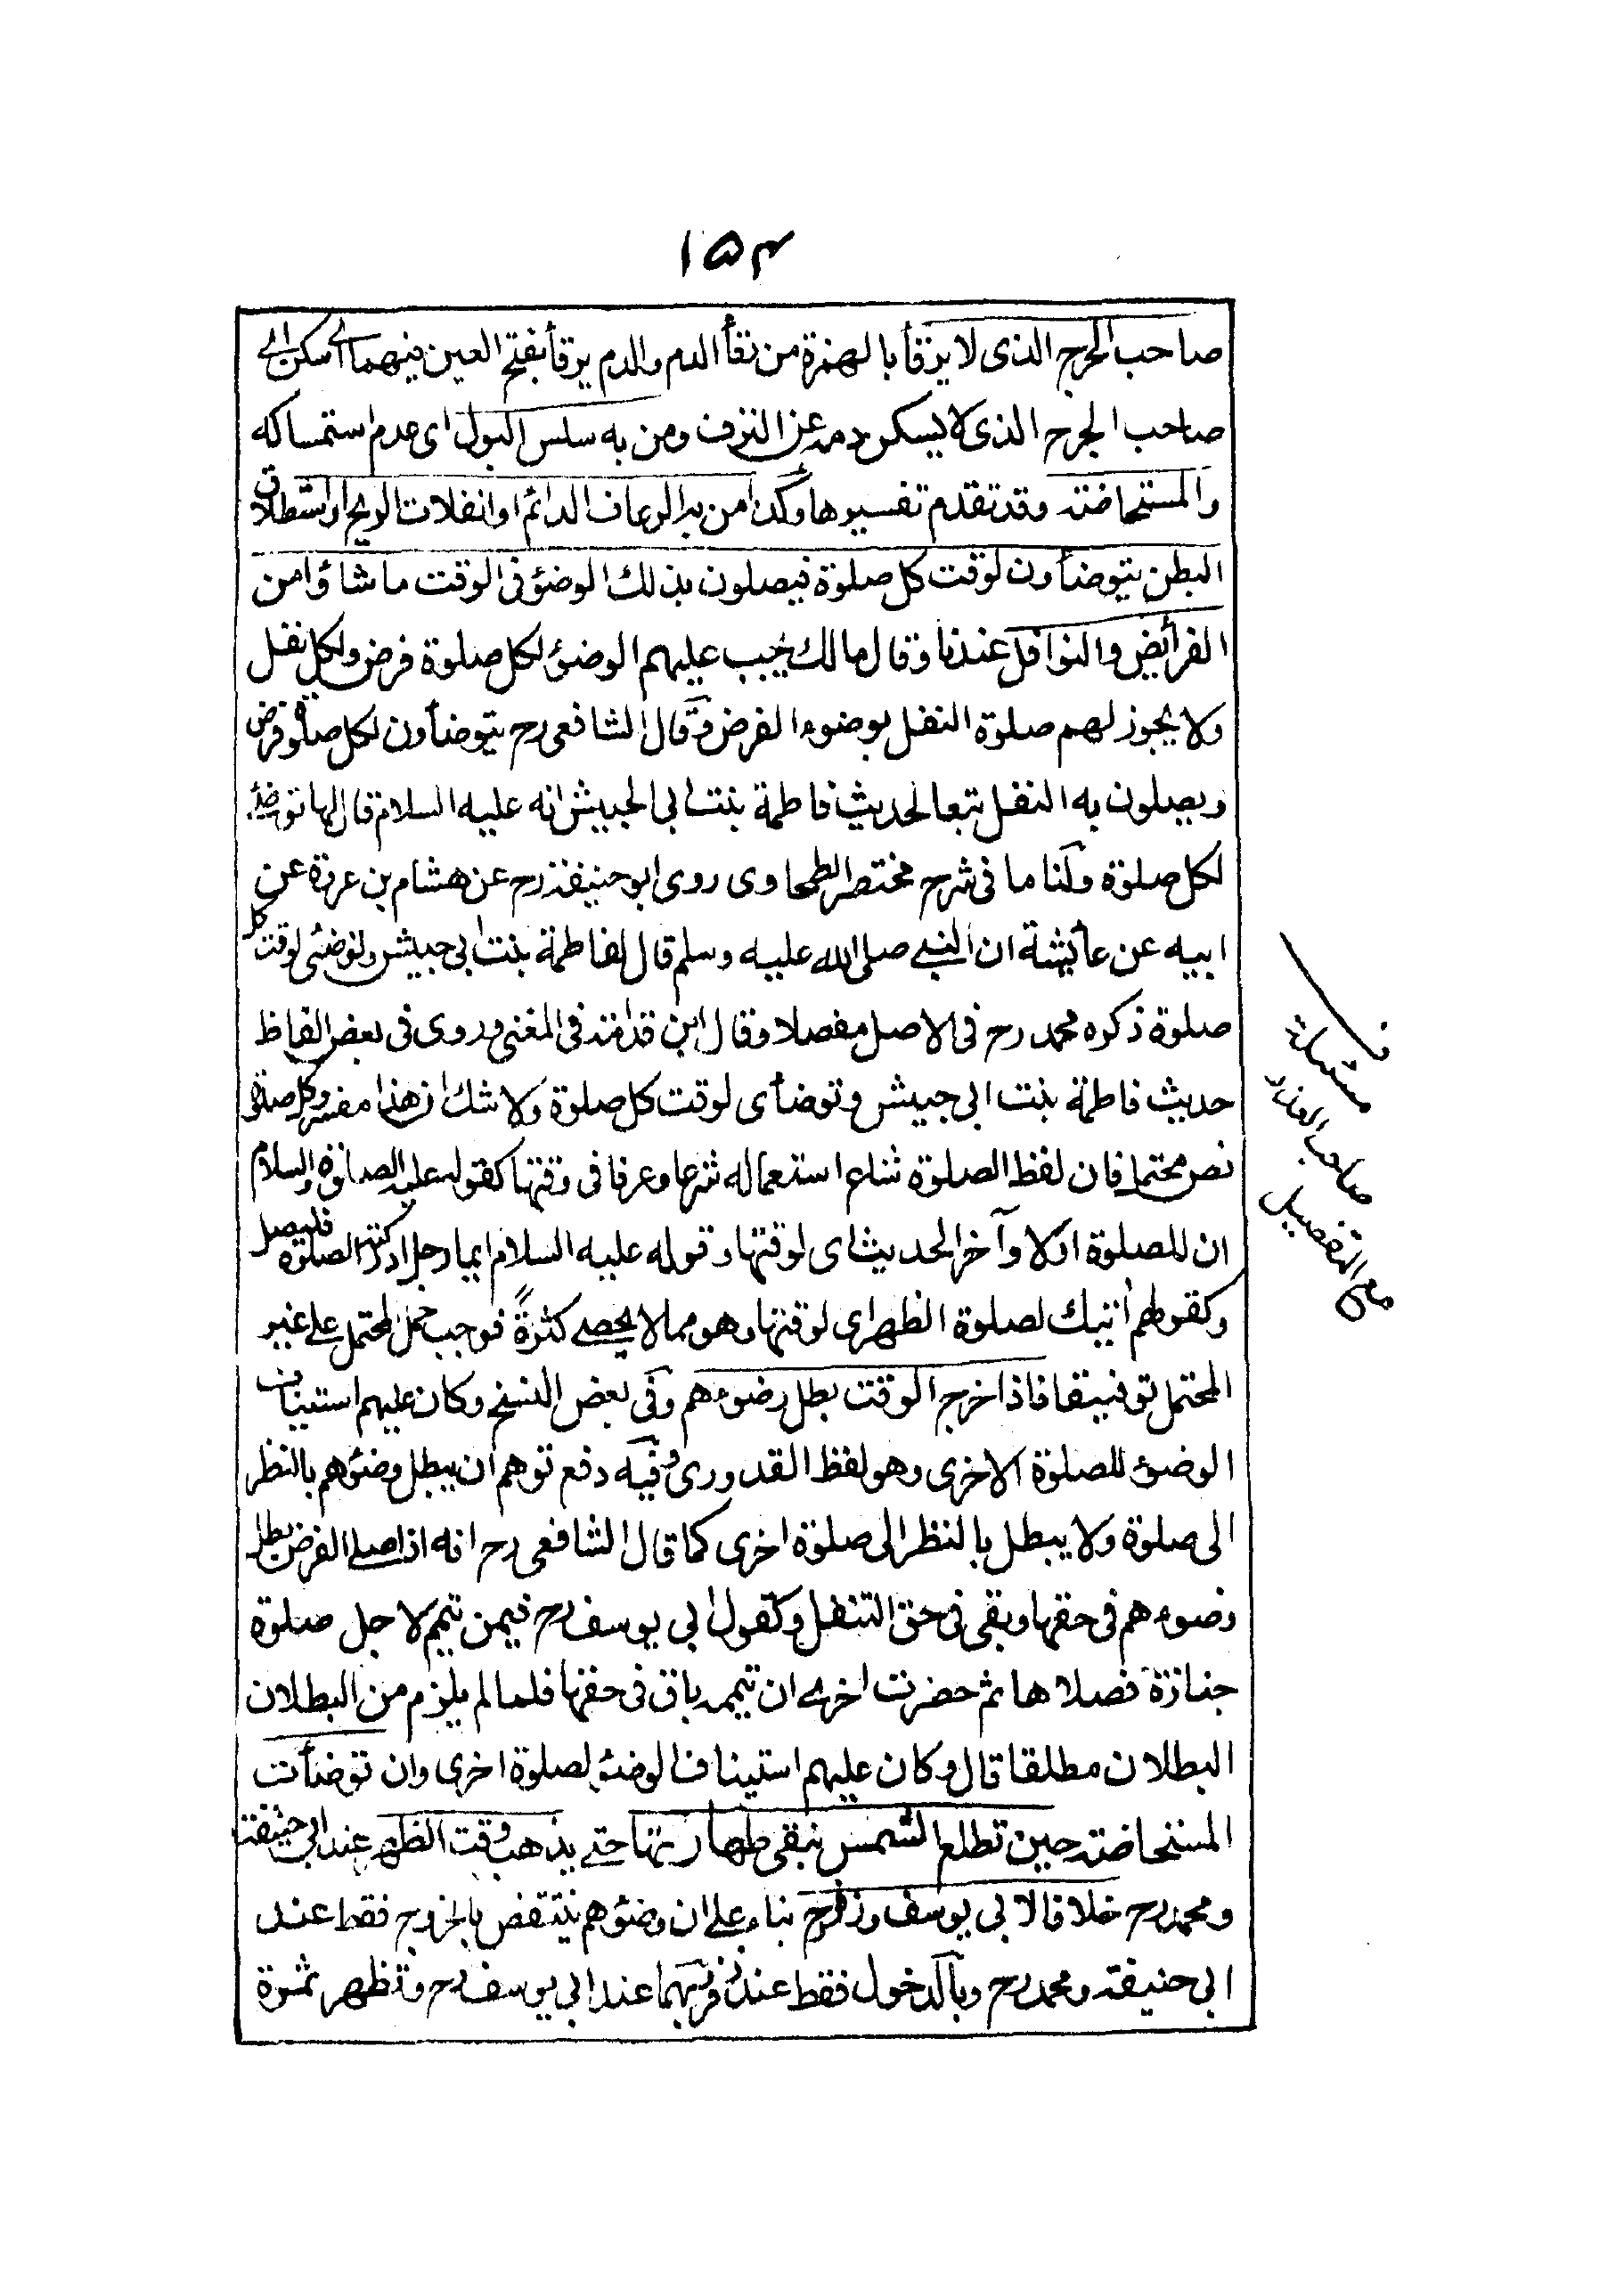 ۱۵۴
صاحب الجرح الذی لا یرقأ بالهمزة من رقأ الدم والدم یرقأ بفتح العین فیهما ای سکن ای
صاحب الجرح الذی لا یسکن دمه عن النزف ومن به سلس البول ای عدم استمساکه
والمستحاضة وقد تقدم تفسیرها وکذا من به الرعاف الدائم او انفلات الریح او استطلاق
البطن یتوضأون لوقت کل صلوة فیصلون بذلك الوضؤ فی الوقت ما شاؤا من
الفرائض والنوافل عندنا وقال مالك یجب علیهم الوضؤ لکل صلوة فرض ولکل نفل
ولا یجوز لهم صلوة النفل بوضوء الفرض وقال الشافعی رح یتوضأون لکل صلوة فرض
ویصلون به النفل تبعا لحدیث فاطمة بنت ابی الحبیش انه علیه السلام قال لها توضئ
لکل صلوة ولنا ما فی شرح مختصر الطحاوی روی ابو حنیفة رح عن هشام بن عروة عن
ابیه عن عائشة ان النبی صلی الله علیه وسلم قال لفاطمة بنت ابی حبیش وتوضئی لوقت کل
صلوة ذکره محمد رح فی الاصل مفصلا وقال ابن قدامة فی المغنی وروی فی بعض الفاظ
حدیث فاطمة بنت ابی حبیش وتوضأی لوقت کل صلوة ولا شك ان هذا مفسر ولکل صلوة
نص محتمل فان لفظ الصلوة شاع استعماله شرعا وعرفا فی وقتها کقوله علیه الصلوة والسلام
ان للصلوة اولا وآخرا الحدیث ای لوقتها وقوله علیه السلام ایما رجل ادرکته الصلوة فلیصل
وکقولهم أتیك لصلوة الظهر ای لوقتها وهو مما لا یحصی کثرةً فوجب حمل المحتمل علی غیر
المحتمل توفیقا فاذا خرج الوقت بطل وضوءهم وفی بعض النسخ وکان علیهم استیناف
الوضؤ للصلوة الاخری وهو لفظ القدوری وفیه دفع توهم ان یبطل وضؤهم بالنظر
الی صلوة ولا یبطل بالنظر الی صلوة اخری کما قال الشافعی رح انه اذا صلی الفرض بطل
وضوءهم فی حقها وبقی فی حق التنفل وکقول ابی یوسف رح فیمن تیمم لاجل صلوة
جنازة فصلاها ثم حضرت اخری ان تیممه باق فی حقها فلما لم یلزم من البطلان
البطلان مطلقا قال وکان علیهم استیناف الوضؤ لصلوة اخری وان توضأت
المستحاضة حین تطلع الشمس تبقی طهارتها حتی یذهب وقت الظهر عند ابی حنیفة
ومحمد رح خلافا لابی یوسف وزفر رح بناء علی ان وضؤهم ینتقض بالخروج فقط عند
ابی حنیفة ومحمد رح وبالدخول فقط عند زفر وبهما عند ابی یوسف رح وتظهر ثمرة
مسئلة
صاحب العذر
مع التفصیل